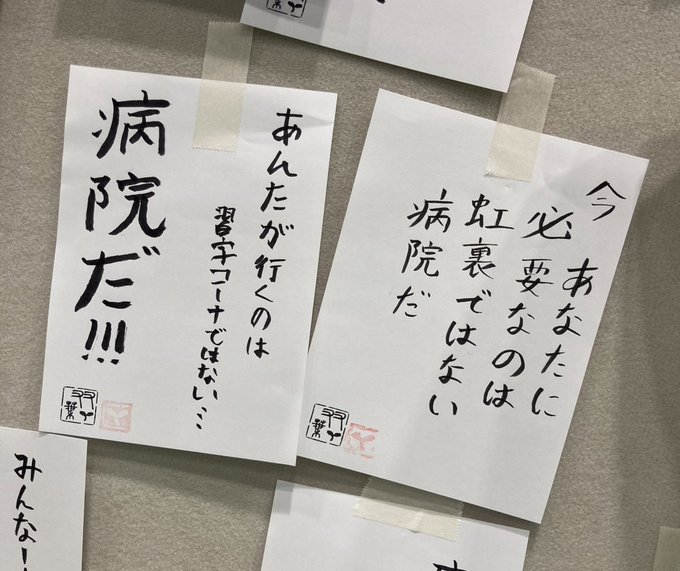 今
あなたに
必要なのは
虹裏ではない
病院だ
双葉
あんたが行くのは
習字コーナではない…
病院だ!!!
双葉
みんな!